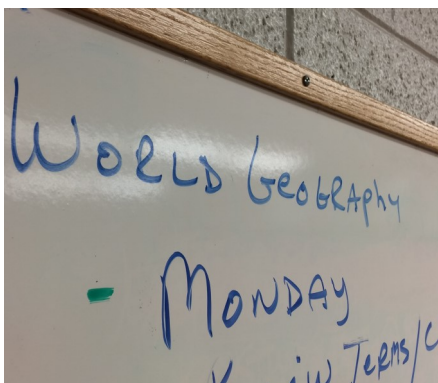 WORLD GEOGRAPhy
- MONDAY
TERMS/